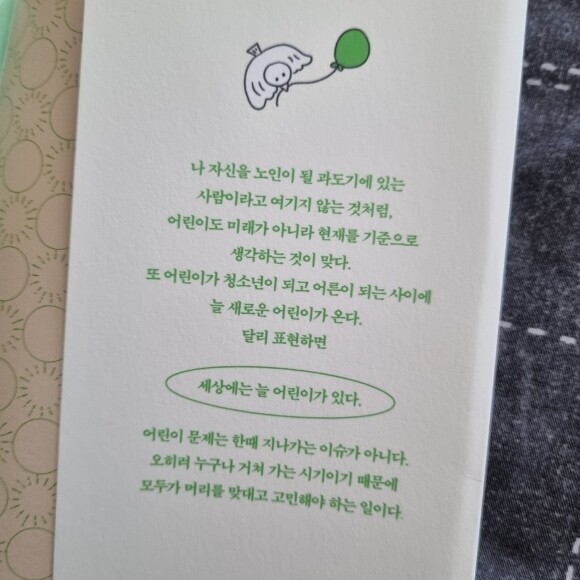 나 자신을 노인이 될 과도기에 있는
사람이라고 여기지 않는 것처럼,
어린이도 미래가 아니라 현재를 기준으로
생각하는 것이 맞다.
또 어린이가 청소년이 되고 어른이 되는 사이에
늘 새로운 어린이가 온다.
달리 표현하면
세상에는 늘 어린이가 있다.
어린이 문제는 한때 지나가는 이슈가 아니다.
오히려 누구나 거쳐 가는 시기이기 때문에
모두가 머리를 맞대고 고민해야 하는 일이다.